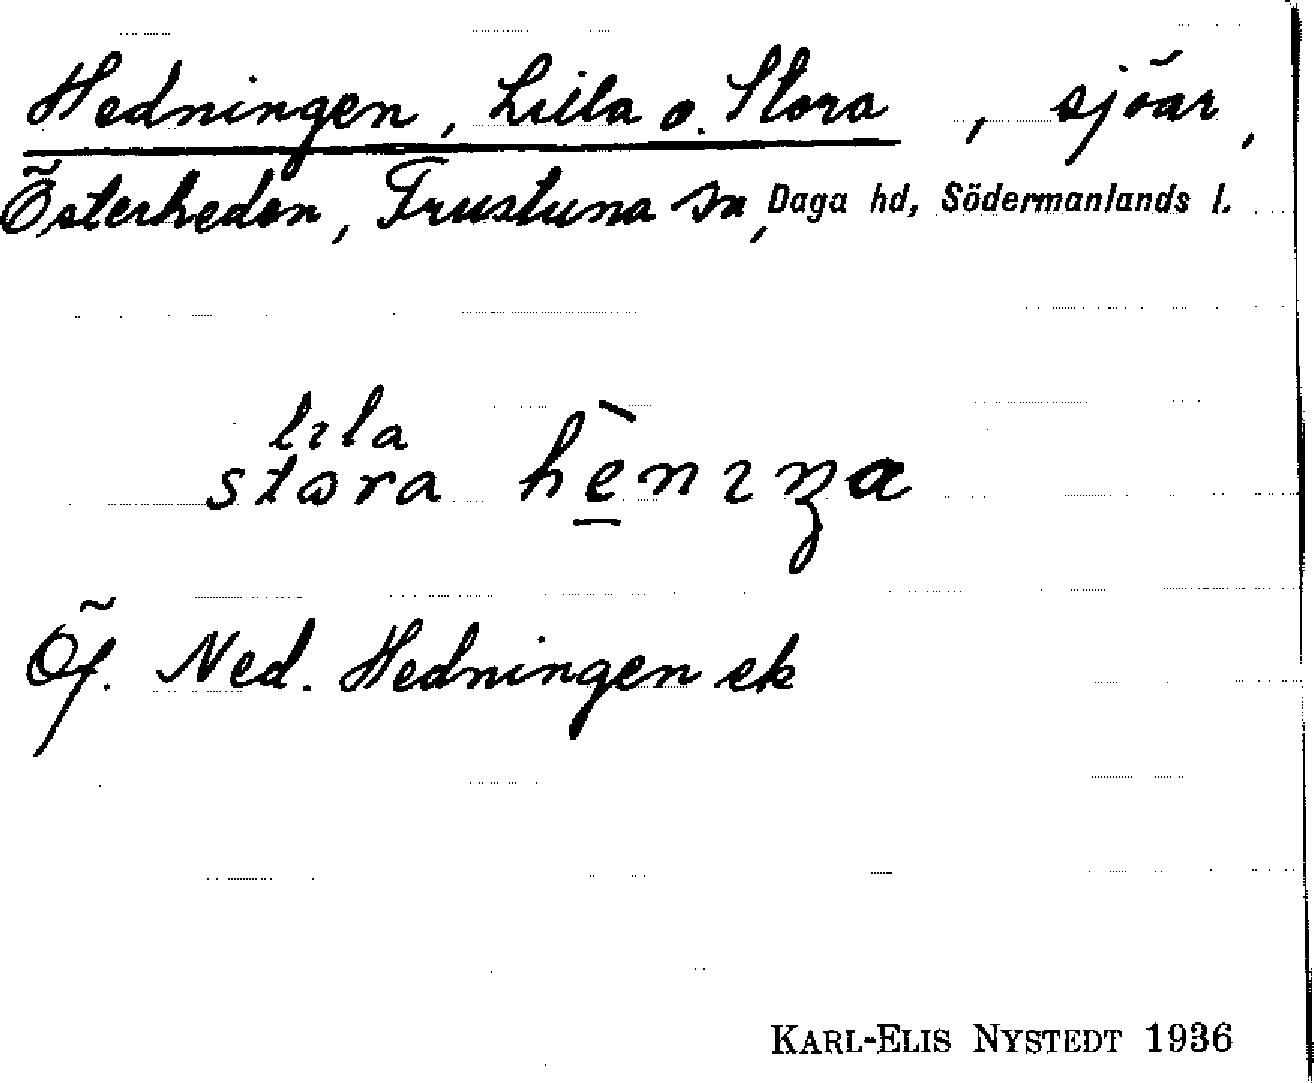 Hedningen, Lilla o. Stora, sjöar,
Österheden, Frustuna sn, Daga hd, Södermanlands l.
lıla
stɷra hènıŋa
Öf. Ned. Hedningen ek
KARL-ELIS NYSTEDT 1936